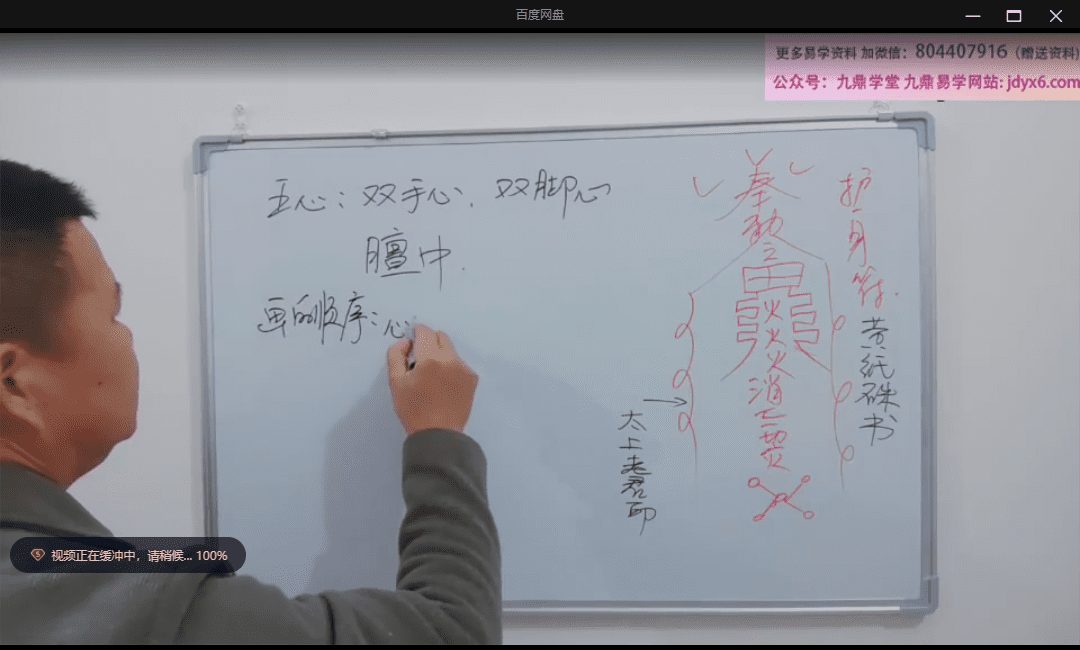 百度网盘
更多易学资料 加微信：804407916（赠送资料)
公众号：九鼎学堂 九鼎易学网站: jdyx6.com
五心：双手心、双脚心
膻中.
画的顺序：心
奉
敕
之
火
火
火
消
亡
护身符.
黄纸硃书
太上老君印
视频正在缓冲中，请稍候... 100%